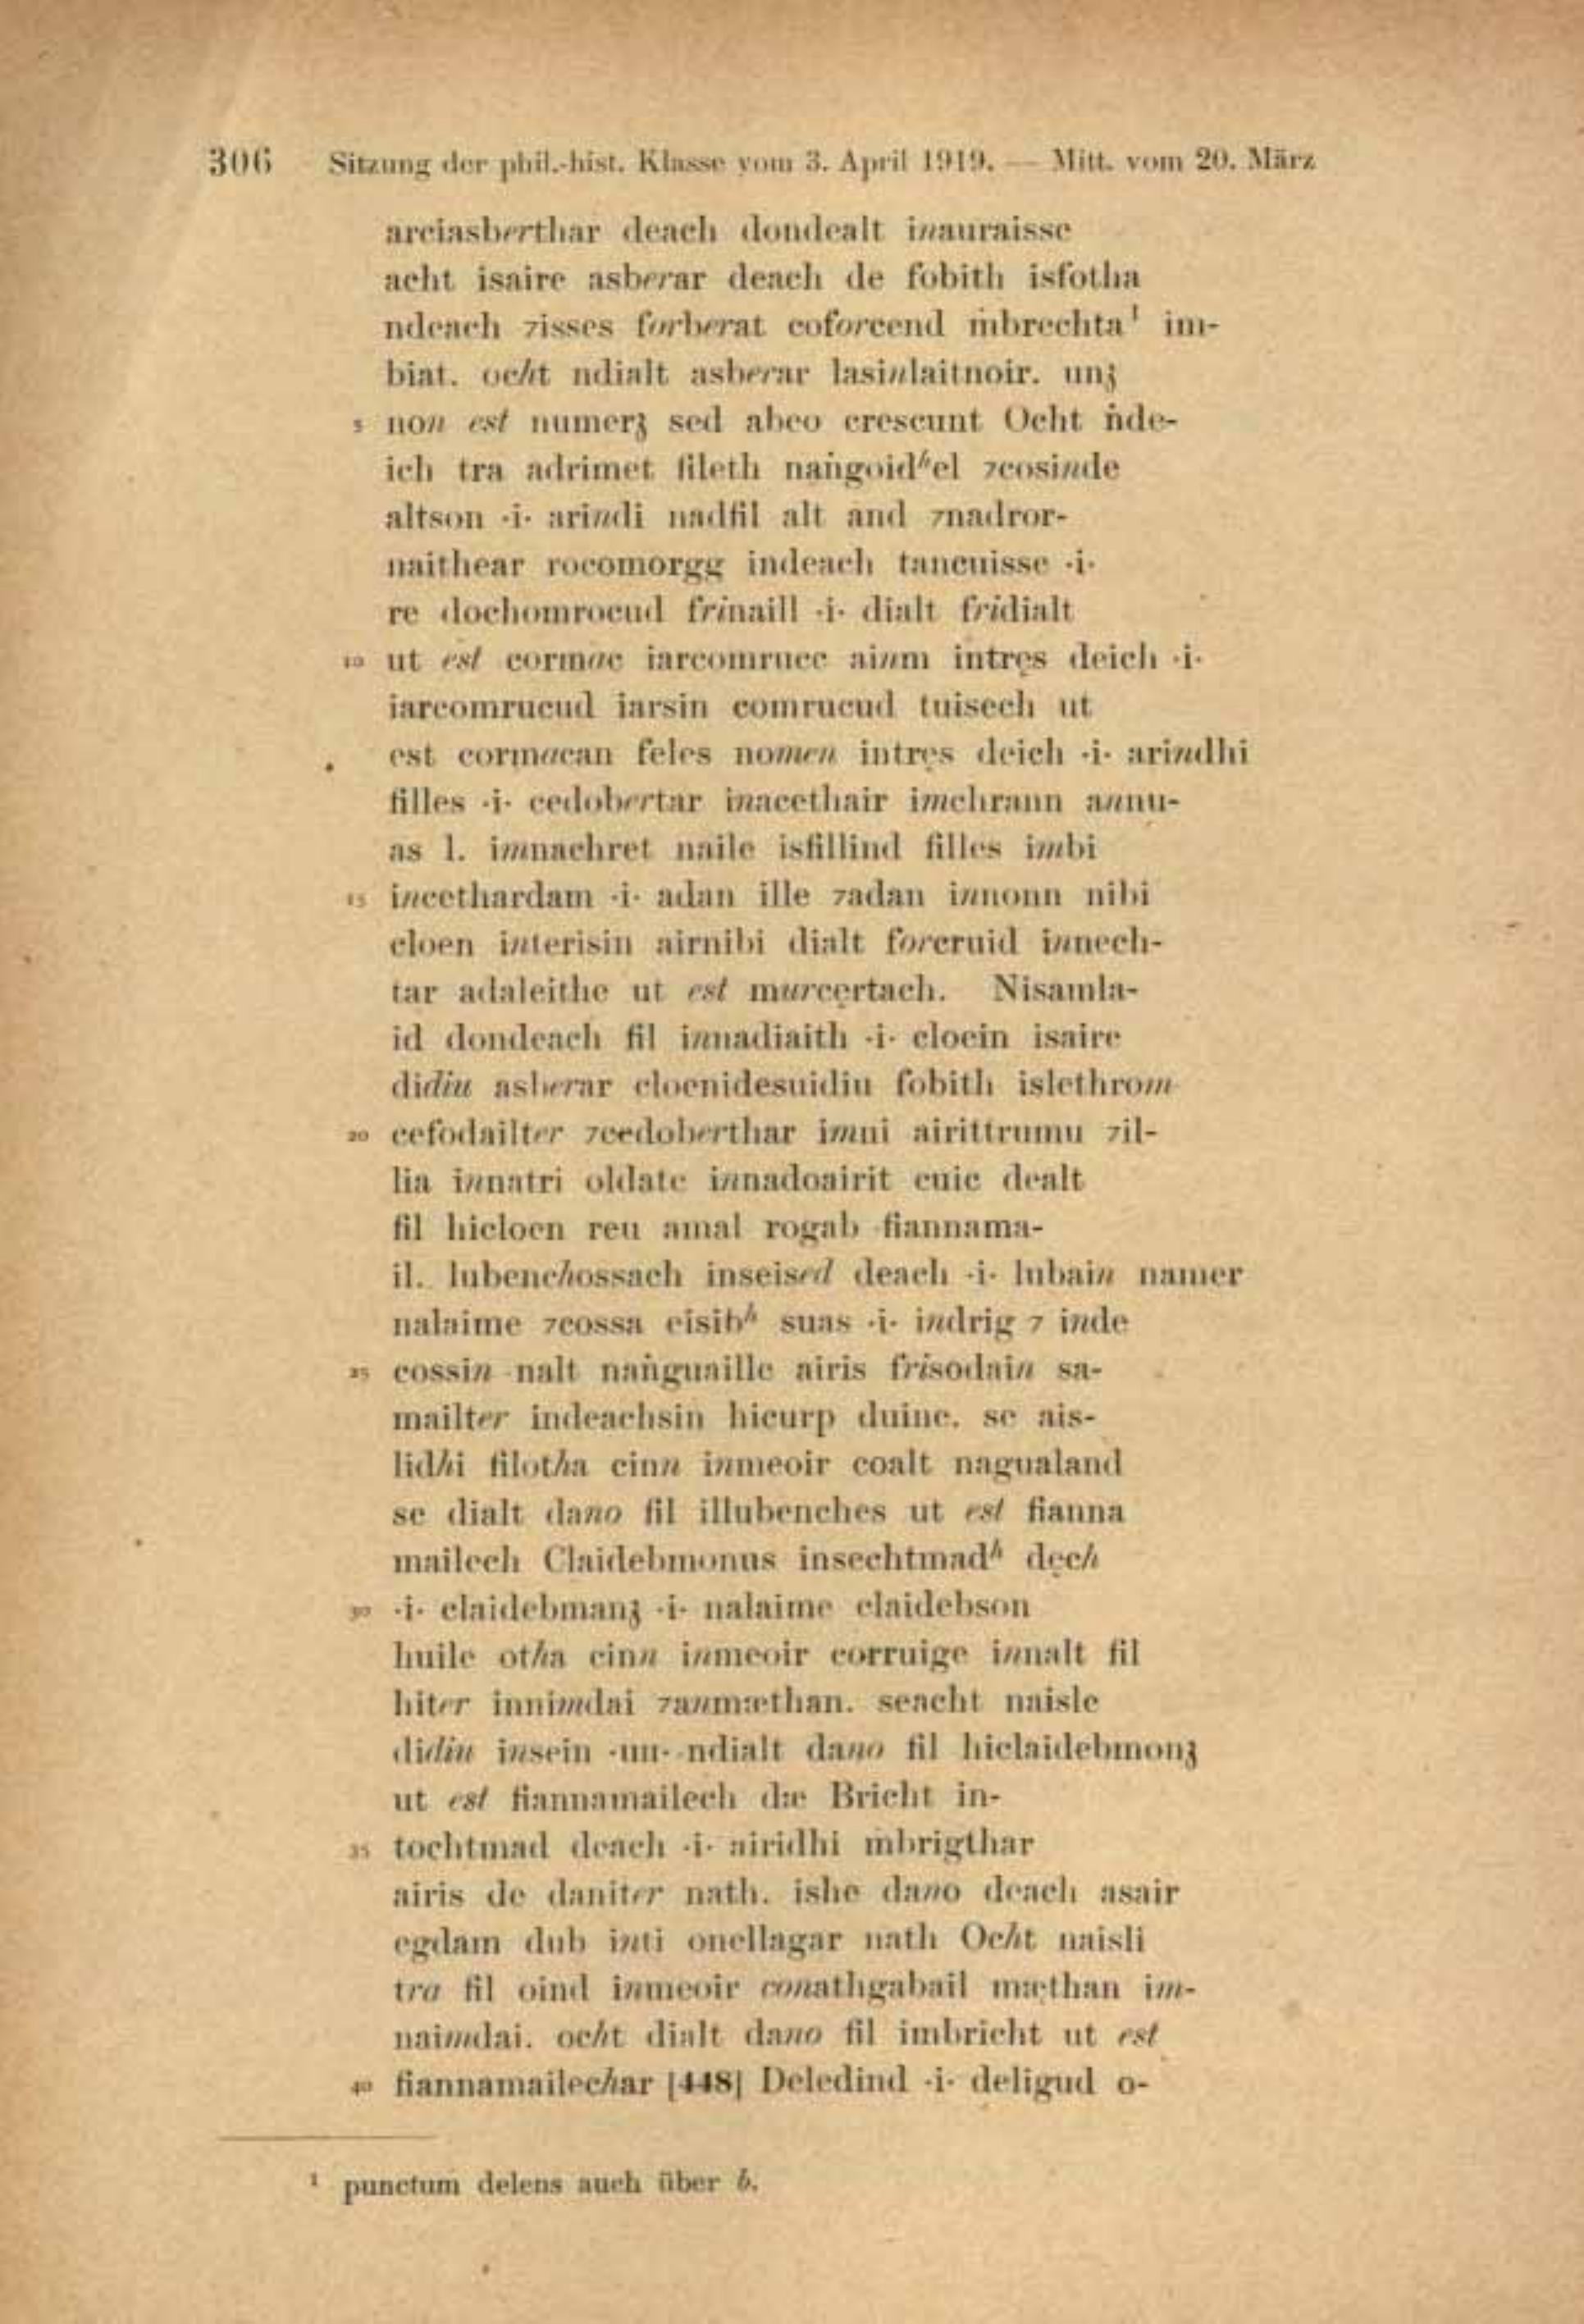 306 Sitzung der phil.-hist. Klasse vom 3. April 1919. — Mitt. vom 20. März
arciasberthar deach dondealt inauraisse
acht isaire asberar deach de fobith isfotha
ndeach ⁊isses forberat coforcend ṁbrechta¹ im-
biat. ocht ndialt asberar lasinlaitnoir. unꝫ
5 non est numerꝫ sed abeo crescunt Ocht ṅde-
ich tra adrimet fileth naṅgoidʰel ⁊cosinde
altson ·i· arindi nadfil alt and ⁊nadror-
naithear rocomorgg indeach tancuisse ·i·
re dochomrocud frinaill ·i· dialt fridialt
10 ut est cormac iarcomrucc ainm intręs deich ·i·
iarcomrucud iarsin comrucud tuisech ut
est cormacan feles nomen intręs deich ·i· arindhi
filles ·i· cedobertar inacethair imchrann annu-
as l. imnachret naile isfillind filles imbi
15 incethardam ·i· adan ille ⁊adan innonn nibi
cloen interisin airnibi dialt forcruid innech-
tar adaleithe ut est murcęrtach. Nisamla-
id dondeach fil innadiaith ·i· cloein isaire
didiu asberar cloenidesuidiu fobith islethrom
20 cefodailter ⁊cedoberthar imni airittrumu ⁊il-
lia innatri oldate innadoairit cuic dealt
fil hicloen reu amal rogab fiannama-
il. lubenchossach inseised deach ·i· lubain namer
nalaime ⁊cossa eisibʰ suas ·i· indrig ⁊ inde
25 cossin nalt naṅguaille airis frisodain sa-
mailter indeachsin hicurp duine. se ais-
lidhi filotha cinn inmeoir coalt nagualand
se dialt dano fil illubenches ut est fianna
mailech Claidebmonus insechtmadʰ dęch
30 ·i· claidebmanꝫ ·i· nalaime claidebson
huile otha cinn inmeoir corruige innalt fil
hiter innimdai ⁊anmæthan. seacht naisle
didiu insein ·uii· ndialt dano fil hiclaidebmonꝫ
ut est fiannamailech dæ Bricht in-
35 tochtmad deach ·i· airidhi mbrigthar
airis de daniter nath. ishe dano deach asair
egdam dub inti onellagar nath Ocht naisli
tra fil oind inmeoir conathgabail mæthan im-
naimdai. ocht dialt dano fil imbricht ut est
40 fiannamailechar [448] Deledind ·i· deligud o-
¹ punctum delens auch über b.